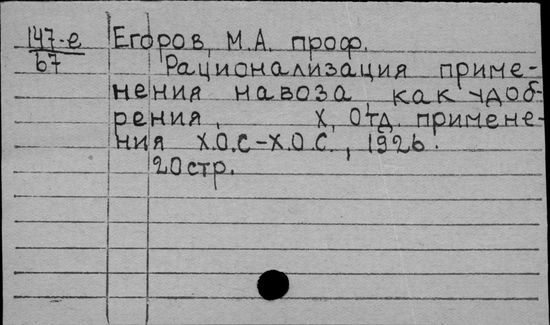 147-е Егоров, М.А. проф.
67 Рационализация приме-
нения навоза, как удоб-
рения, Х, Отд. примене-
ния Х.О.С-Х.О.С., 1926.
20стр.